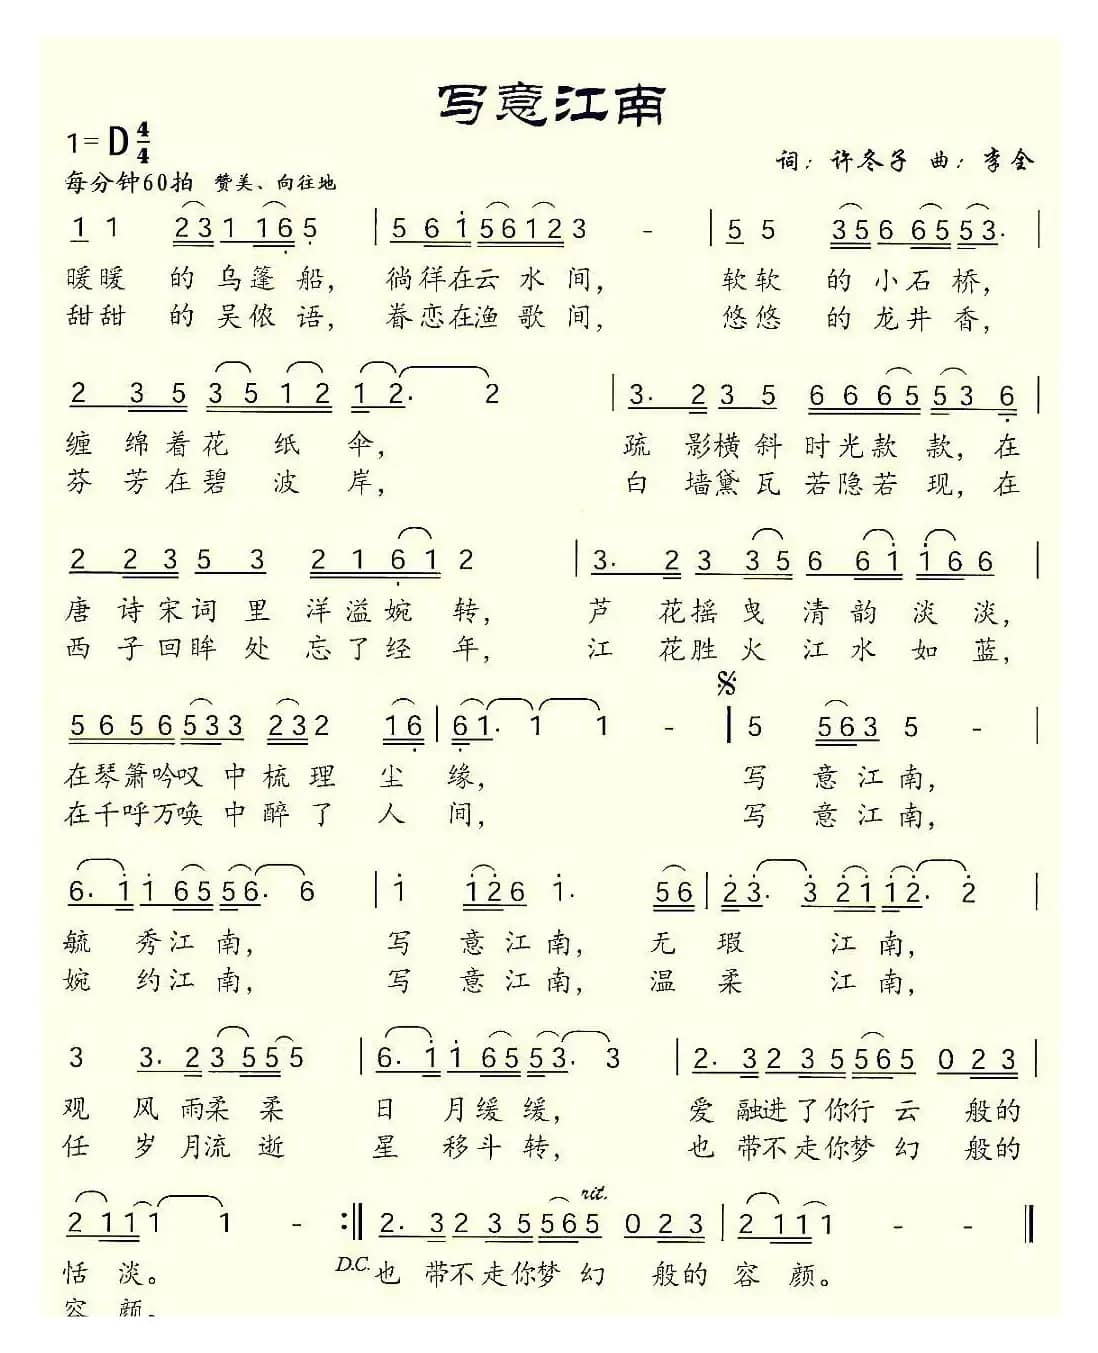 写意江南
1=D 4/4
词：许冬子 曲：李全
每分钟60拍 赞美、向往地
1 1 2 3 1 1 6 5 | 5 6 1 5 6 1 2 3 - | 5 5 3 5 6 6 5 5 3. |
暖暖 的 乌篷 船， 徜徉在云 水 间， 软软 的 小石 桥，
甜甜 的 吴侬 语， 眷恋在渔 歌 间， 悠悠 的 龙井 香，
2 3 5 3 5 1 2 1 2. 2 | 3. 2 3 5 6 6 6 5 5 3 6 |
缠 绵 着花 纸 伞， 疏 影横 斜 时光款 款，在
芬 芳 在碧 波 岸， 白 墙黛 瓦 若隐若 现，在
2 2 3 5 3 2 1 6 1 2 | 3. 2 3 3 5 6 6 1 1 6 6 |
唐 诗宋词 里 洋溢婉 转， 芦 花摇 曳 清 韵 淡 淡，
西 子回眸 处 忘了经 年， 江 花胜 火 江 水 如 蓝，
5 6 5 6 5 3 3 2 3 2 1 6 | 6 1. 1 1 - | 5 5 6 3 5 - |
在琴箫吟叹 中梳 理 尘 缘， 写 意江南，
在千呼万唤 中醉 了 人 间， 写 意江南，
6. 1 1 6 5 5 6. 6 | 1 1 2 6 1. 5 6 | 2 3. 3 2 1 1 2. 2 |
毓 秀江 南， 写 意江 南， 无 瑕 江 南，
婉 约江 南， 写 意江 南， 温 柔 江 南，
3 3. 2 3 5 5 5 | 6. 1 1 6 5 5 3. 3 | 2. 3 2 3 5 5 6 5 0 2 3 |
观 风 雨柔 柔 日 月缓 缓， 爱 融进了你行 云 般的
任 岁 月流 逝 星 移斗 转， 也 带不走你梦 幻 般的
rit.
2 1 1 1 1 - :|| 2. 3 2 3 5 5 6 5 0 2 3 | 2 1 1 1 - - ||
恬 淡。 D.C. 也 带不走你梦 幻 般的 容 颜。
容 颜。